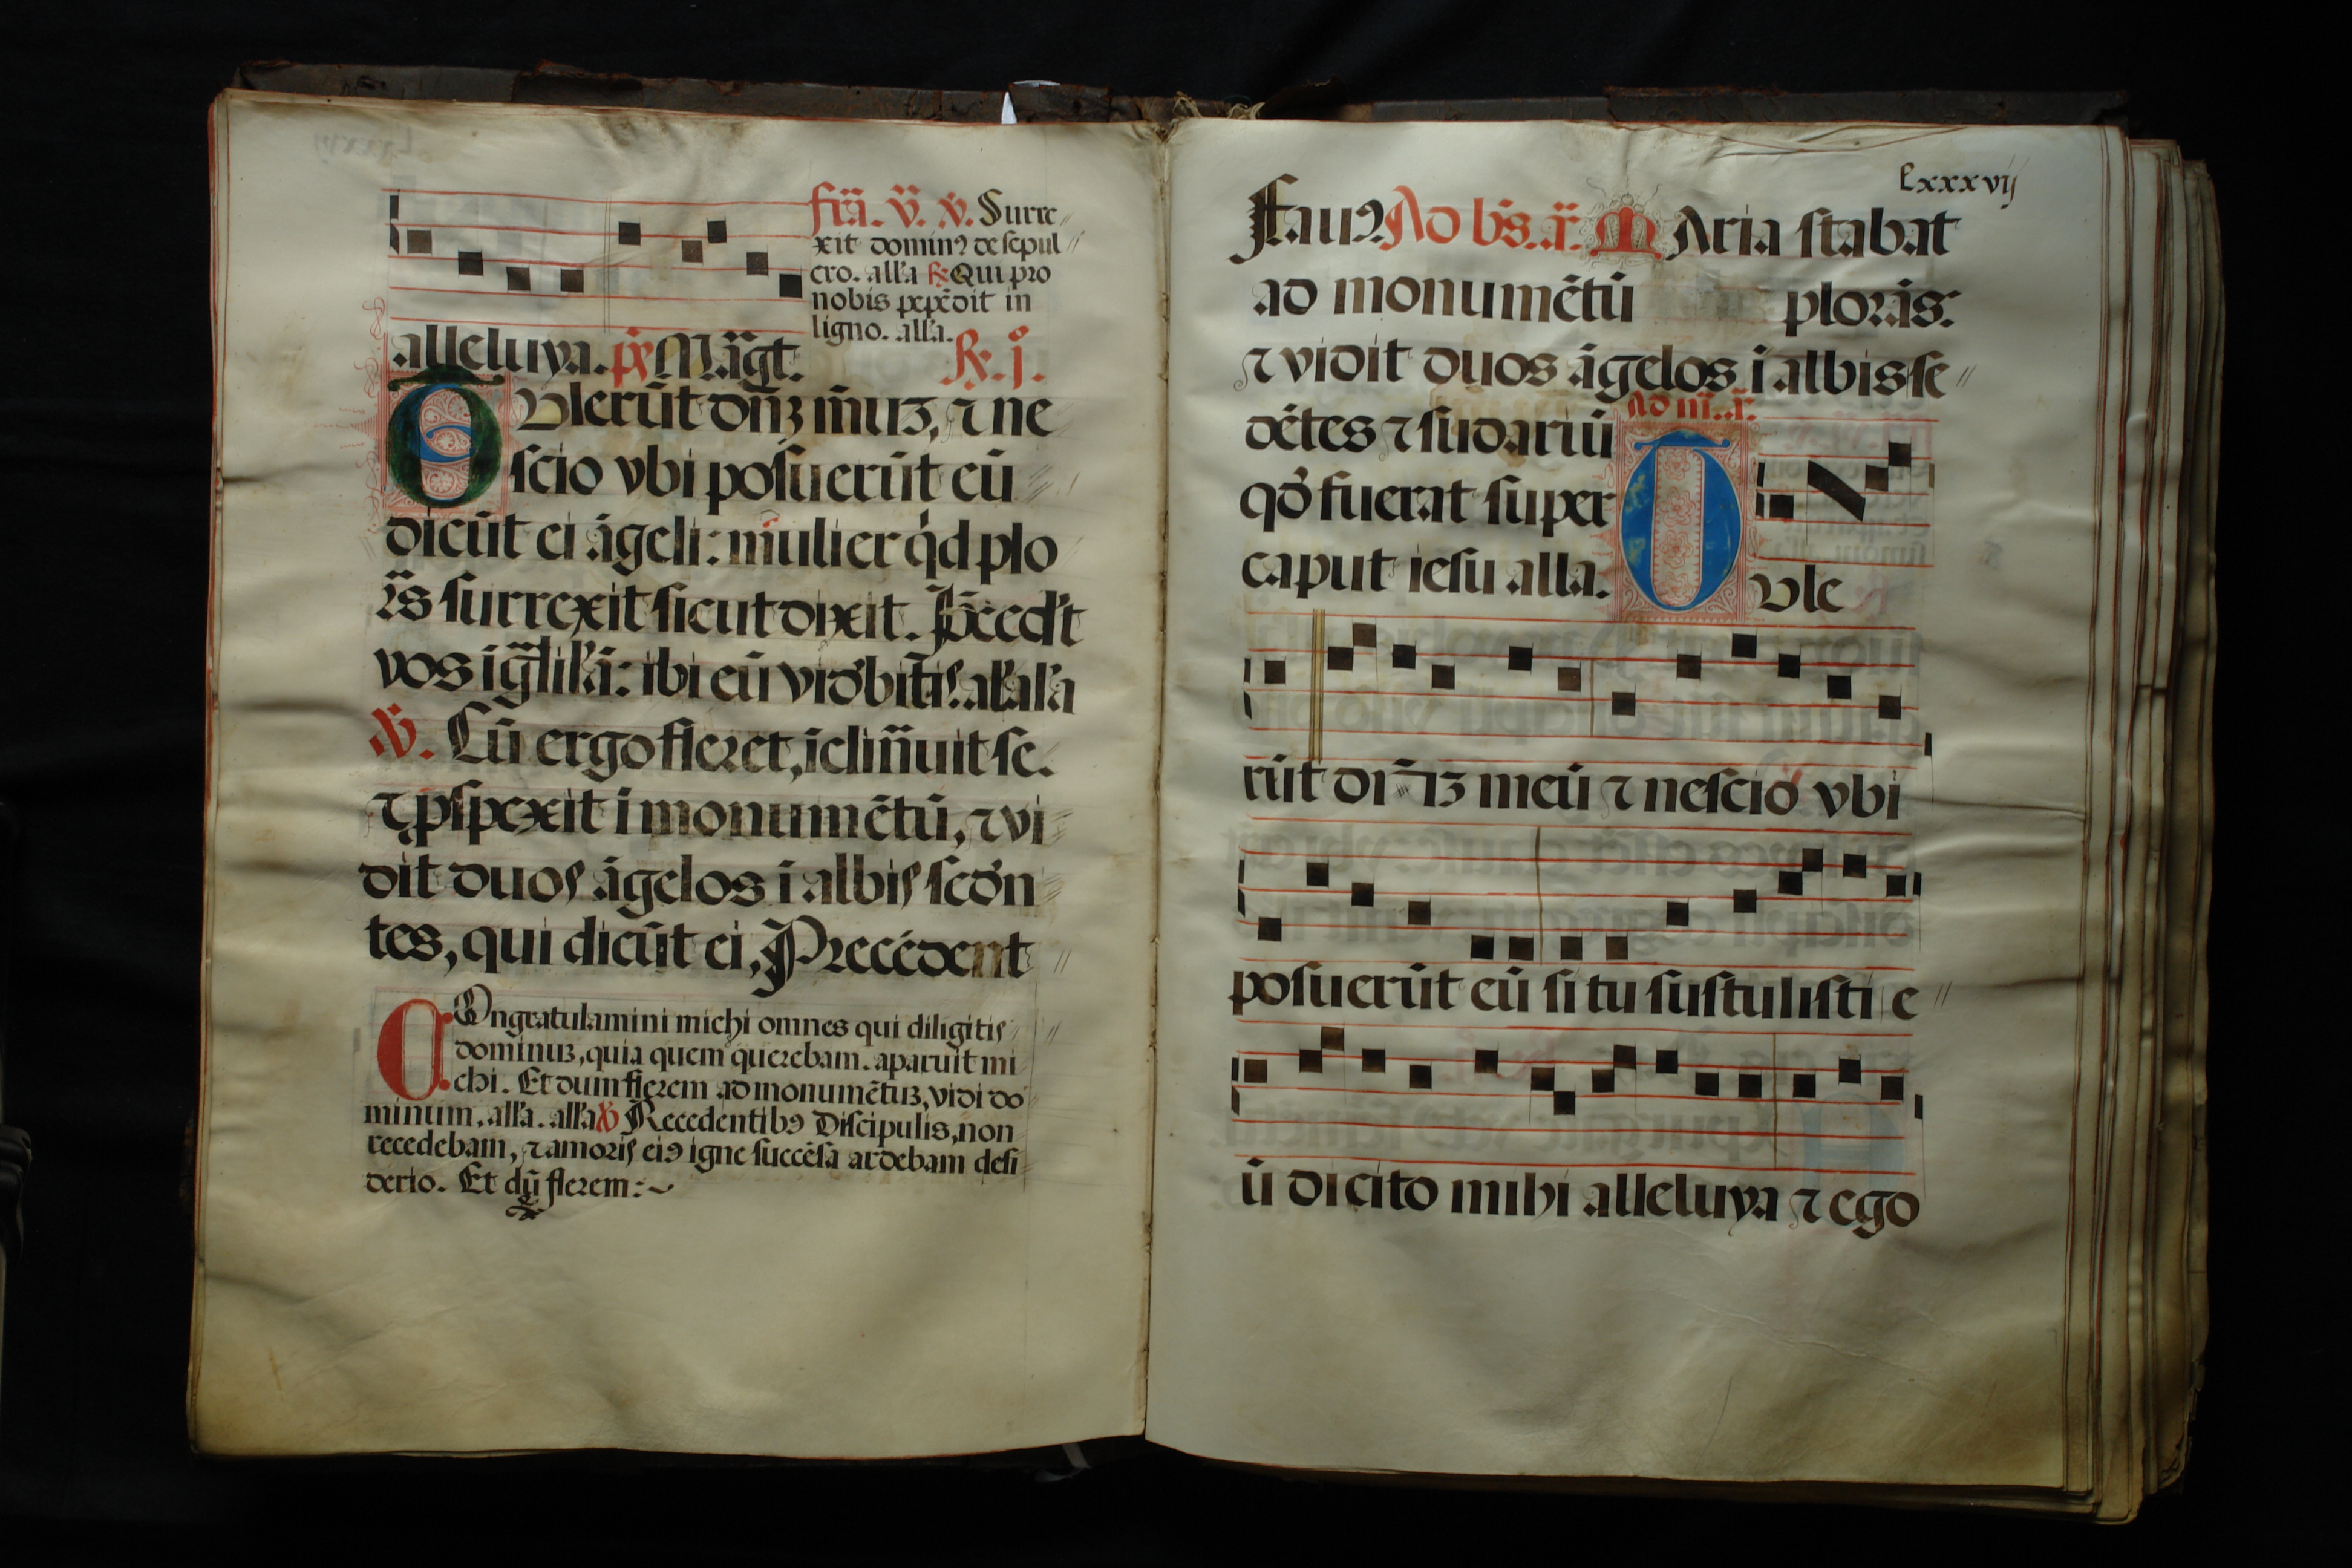 fr̃a. v̈. v̇. Surre
xit dominꝰ de sepul
cro. all'a ℟ Qui pro
nobis pepẽdit in
ligno. all'a.
alleluya. Mãgt. ℟. j.
Tulerũt dñꝫ mũꝫ, ⁊ ne
scio vbi posuerũt eũ
dicũt ei ãgeli: mulier qͥd plo
r̃s surrexit sicut dixit. p̃cedt
vos i gl'il'ã: ibi eũ vidbitis. al'a al'a
℣. Cũ ergo fleret, iclinuit se.
⁊ ꝓspexit i monumẽtũ, ⁊ vi
dit duos ãgelos i albis seden
tes, qui dicũt ei, Precédent
Congratulamini michi omnes qui diligitis
dominuꝫ, quia quem querebam. aparuit mi
chi. Et dum flerem ad monumẽtuꝫ, vidi do
minum. all'a. all'a ℣ Recedentibꝰ Discipulis, non
recedebam, ⁊ amoris eiꝰ igne succẽsa ardebam desi
derio. Et dũ flerem:~
Lxxxvij
Ad bs. a. Maria stabat
ad monumẽtũ plorãs:
⁊ vidit duos ãgelos i albis se
dẽtes ⁊ sudariũ Ad m. a.
qd̃ fuerat super
caput iesu alla. Tule
rũt dñꝫ meũ ⁊ nescio vbi
posuerũt eũ si tu sustulisti e
ũ dicito mihi alleluya ⁊ ego